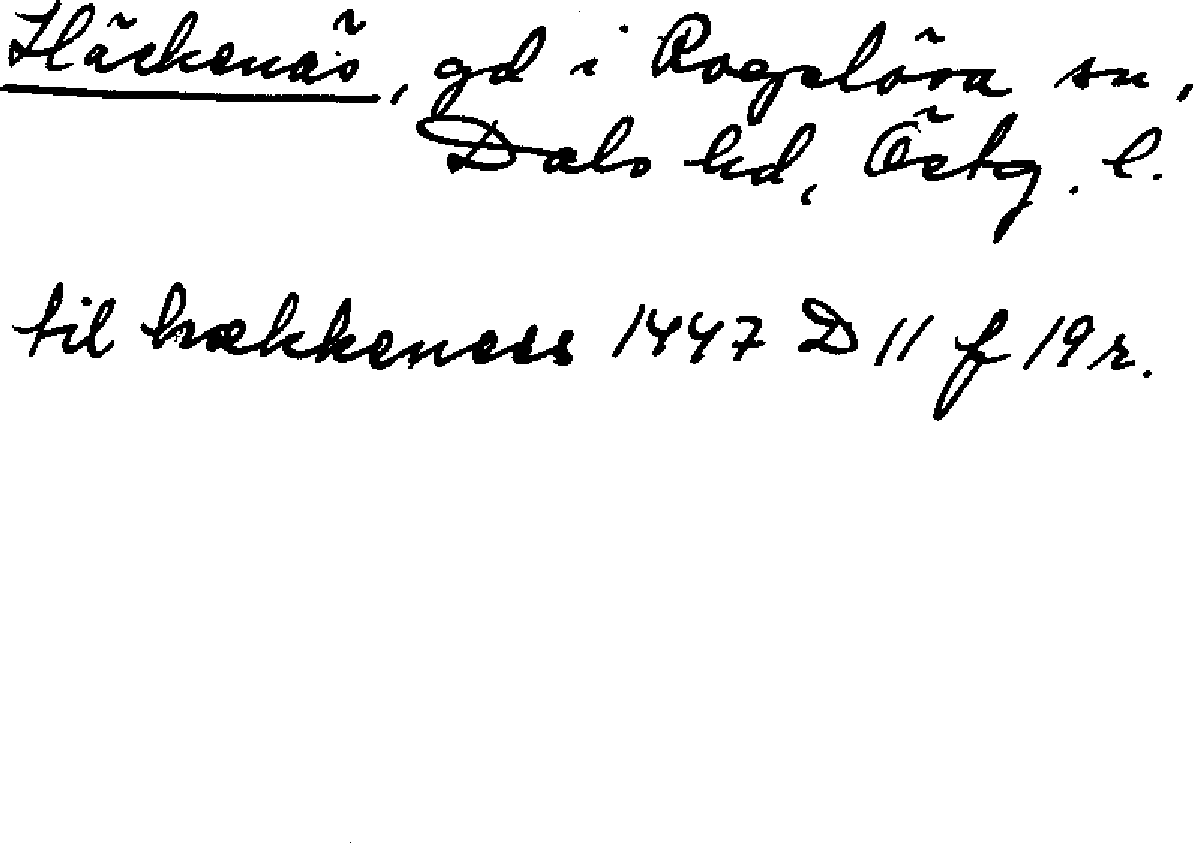 Häckenäs, gd i Rogslösa sn,
Dals hd, Östg. l.
til hækkeness 1447 D 11 f 19 r.